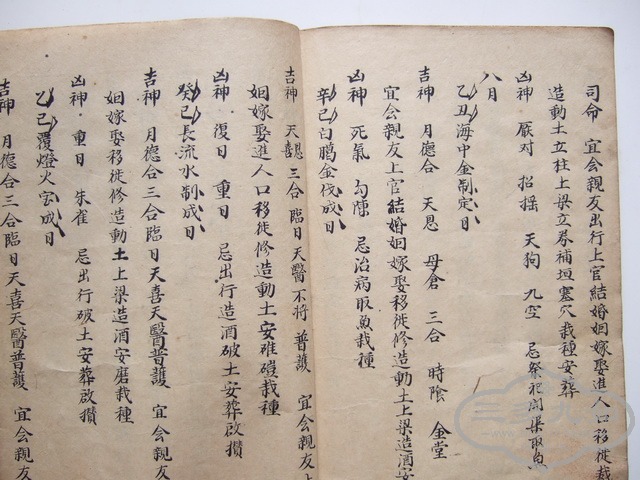 司命　宜会親友出行上官結婚姻嫁娶進人口移徙裁
造動土立柱上梁立券補垣塞穴栽種安葬
凶神　厭对　招摇　天狗　九空　忌祭祀開渠取魚
八月
乙丑海中金制定日
吉神　月德合　天恩　母倉　三合　時陰　金堂
宜会親友上官結婚姻嫁娶移徙修造動土上梁造酒安
凶神　死氣　勾陳　忌治病取魚栽種
辛巳白鵉金伐成日
吉神　天恩天喜三合臨日天醫不将　普護　宜会親友上
姻嫁娶進人口移徙修造動土安碓磑栽種
凶神　復日　重日　忌出行造酒破土安葬啟攢
癸巳長流水制成日
吉神　月德合三合臨日天喜天醫普護　宜会親友
姻嫁娶移徙修造動土上梁造酒安磨栽種
凶神　重日　朱雀　忌出行破土安葬啟攢
乙巳覆燈火宝成日
吉神　月德合三合臨日天喜天醫普護　宜会親友